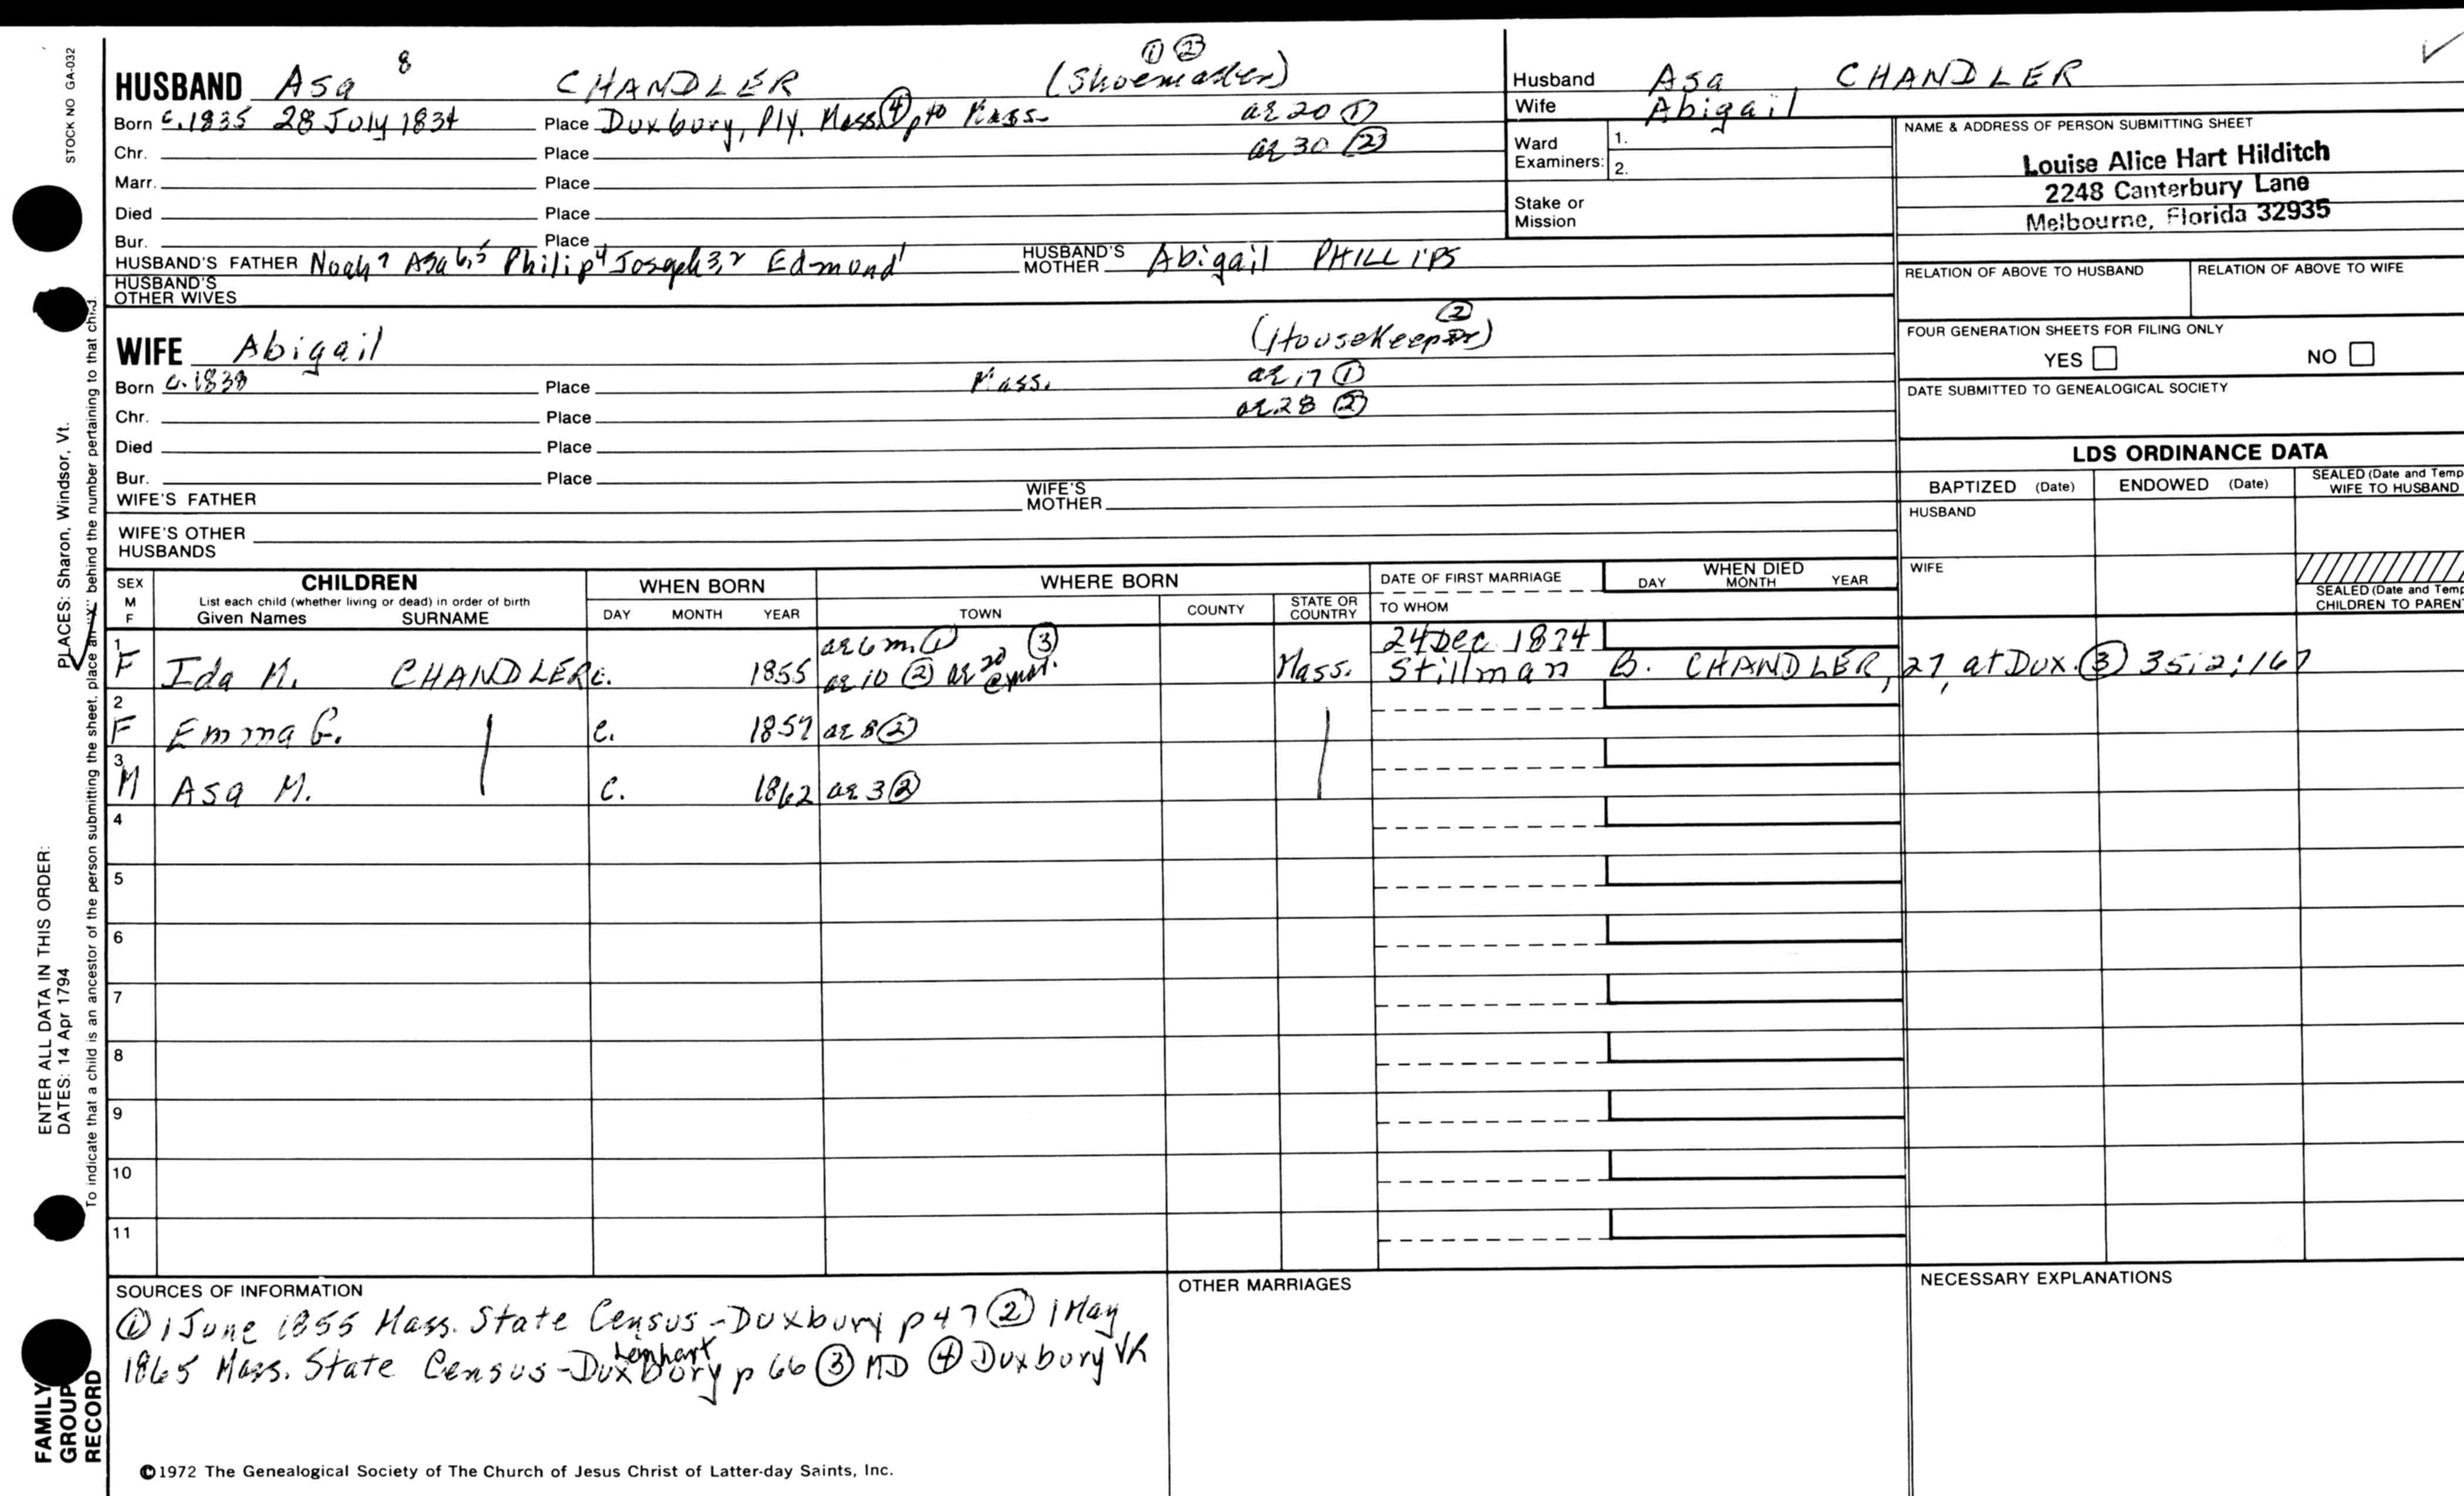 STOCK NO GA-032
HUSBAND Asa 8 CHANDLER (Shoemaker) ① ②
Born c.1835 28 July 1834 Place Duxbury, Ply. Mass ④ Mass. ae 20 ①
Chr. Place ae 30 ②
Marr. Place
Died Place
Bur. Place
HUSBAND'S FATHER Noah7 Asa6,5 Philip4 Joseph3,2 Edmund1 HUSBAND'S MOTHER Abigail PHILLIPS
HUSBAND'S OTHER WIVES
WIFE Abigail (Housekeeper) ②
Born c.1838 Place Mass. ae 17 ①
Chr. Place ae 28 ②
Died Place
Bur. Place
WIFE'S FATHER WIFE'S MOTHER
WIFE'S OTHER HUSBANDS
Husband Asa CHANDLER
Wife Abigail
Ward Examiners: 1. 2.
Stake or Mission
NAME & ADDRESS OF PERSON SUBMITTING SHEET
Louise Alice Hart Hilditch
2248 Canterbury Lane
Melbourne, Florida 32935
RELATION OF ABOVE TO HUSBAND RELATION OF ABOVE TO WIFE
FOUR GENERATION SHEETS FOR FILING ONLY
YES NO
DATE SUBMITTED TO GENEALOGICAL SOCIETY
LDS ORDINANCE DATA
BAPTIZED (Date) ENDOWED (Date) SEALED (Date and Temp
WIFE TO HUSBAND
HUSBAND
WIFE
SEALED (Date and Temp
CHILDREN TO PAREN
SEX M F CHILDREN WHEN BORN WHERE BORN DATE OF FIRST MARRIAGE WHEN DIED
List each child (whether living or dead) in order of birth
Given Names SURNAME DAY MONTH YEAR TOWN COUNTY STATE OR COUNTRY TO WHOM DAY MONTH YEAR
1 ae 6 m. ① ③ 24 Dec 1874
F Ida M. CHANDLER c. 1855 ae 10 ② ae 20 @ Mass. Stillman B. CHANDLER, 27, at Dux. ③ 35;2;167
2
F Emma G. c. 1857 ae 8 ②
3
M Asa M. c. 1862 ae 3 ②
4
5
6
7
8
9
10
11
SOURCES OF INFORMATION
① 1 June 1855 Mass. State Census-Duxbury p 47 ② 1 May
1865 Mass. State Census-Duxbury Lenhart p 66 ③ MD ④ Duxbury VR
OTHER MARRIAGES
NECESSARY EXPLANATIONS
©1972 The Genealogical Society of The Church of Jesus Christ of Latter-day Saints, Inc.
ENTER ALL DATA IN THIS ORDER:
PLACES: Sharon, Windsor, Vt.
DATES: 14 Apr 1794
To indicate that a child is an ancestor of the person submitting the sheet, place an "X" behind the number pertaining to that child.
FAMILY
GROUP
RECORD